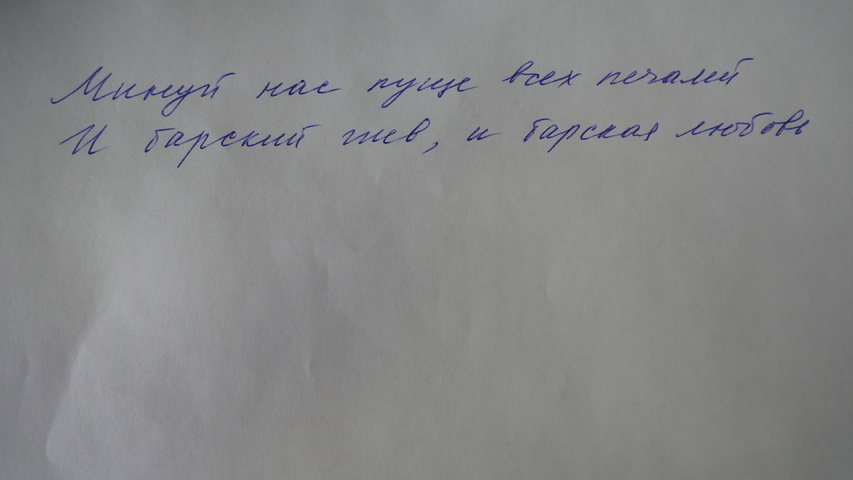 Минуй нас пуще всех печалей
И барский гнев, и барская любовь